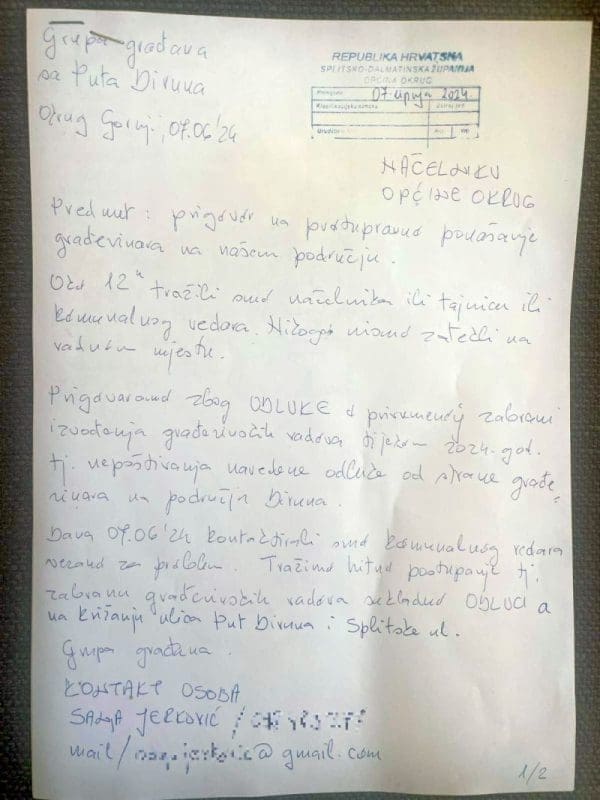 Grupa građana
sa Puta Biruna
Okrug Gornji, 07.06'24
REPUBLIKA HRVATSKA
SPLITSKO-DALMATINSKA ŽUPANIJA
OPĆINA OKRUG
07. lipnja 2024.
NAČELNIKU
OPĆINE OKRUG
Predmet : prigovor na protupravno ponašanje
građevinara na našem području.
Oko 12 h tražili smo načelnika ili tajnicu ili
komunalnog redara. Nikoga nismo zatekli na
radnom mjestu.
Prigovaramo zbog ODLUKE o privremenoj zabrani
izvođenja građevinskih radova tijekom 2024. god.
tj. nepoštivanja navedene odluke od strane građe-
vinara na području Biruna.
Dana 07.06'24 kontaktirali smo komunalnog redara
vezano za problem. Tražimo hitno postupanje tj.
zabranu građevinskih radova sukladno ODLUCI a
na križanju ulica Put Biruna i Splitske ul.
Grupa građana.
KONTAKT OSOBA
SANJA JERKOVIĆ /
mail/ @gmail.com
1/2